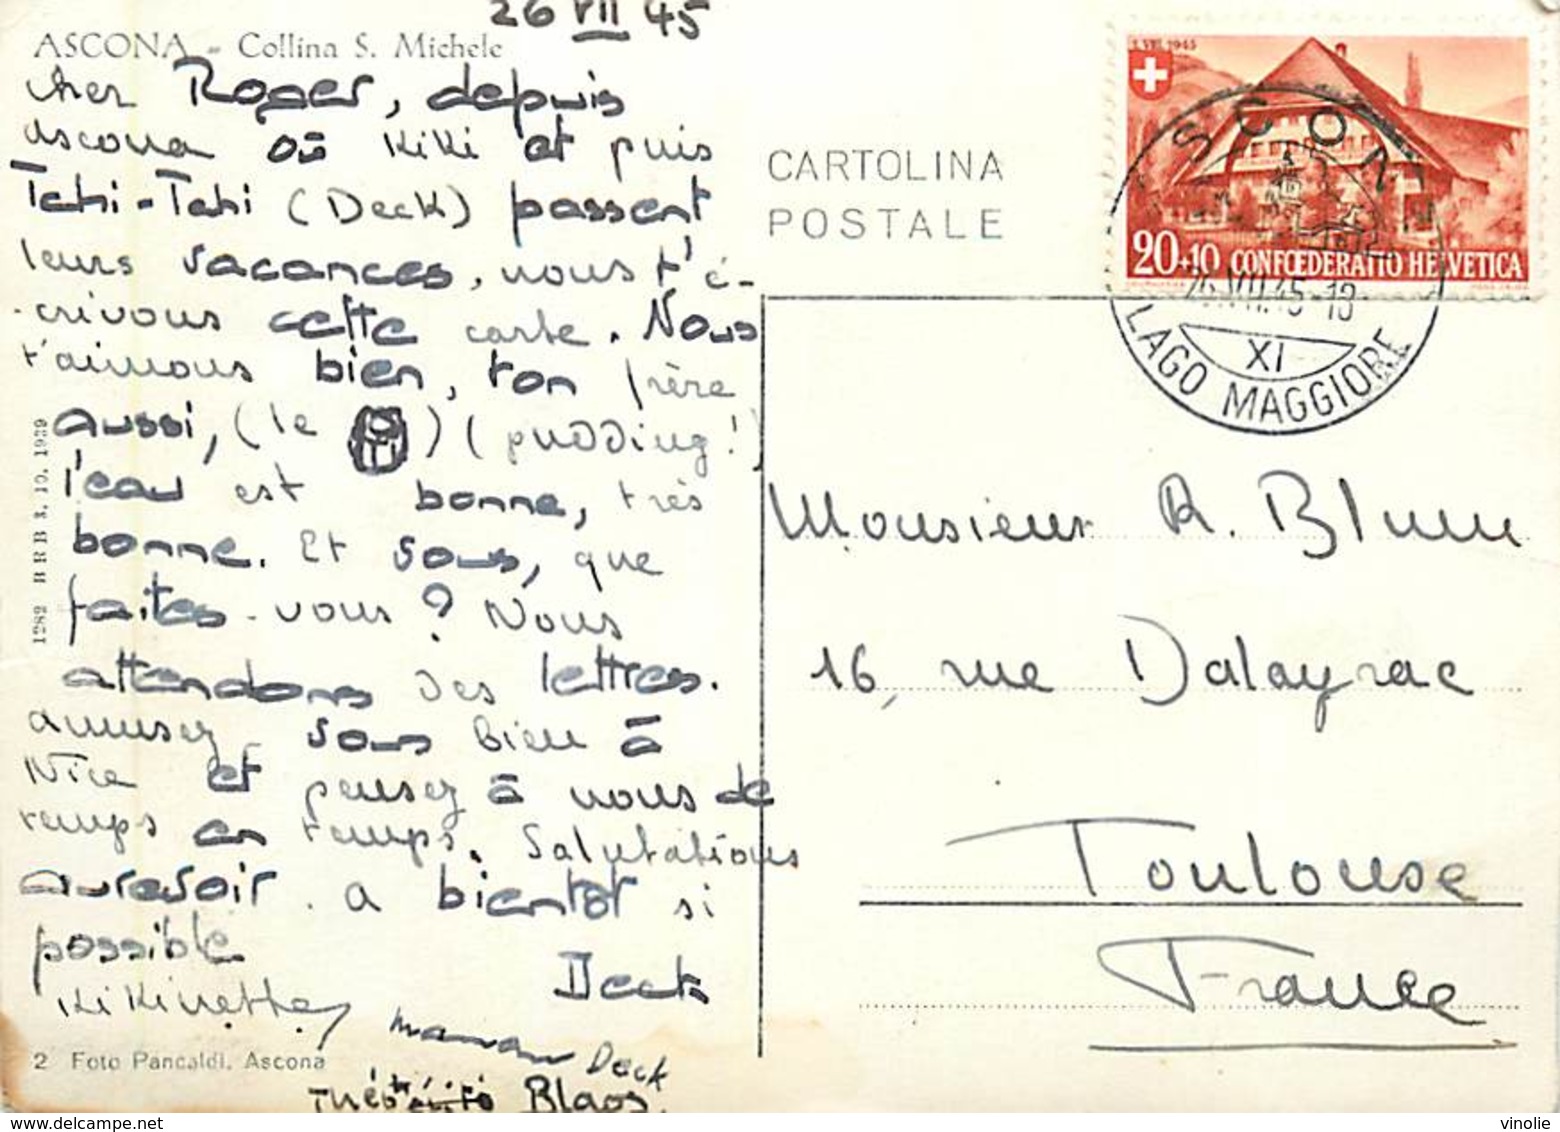 26 VII 45
ASCONA - Collina S. Michele
cher Roger, depuis
ascona où Kiki et puis
Tchi-Tchi (Deck) passent
leurs vacances, nous t'é-
crivons cette carte. Nous
t'aimons bien, ton frère
aussi, (le ) (pudding!)
l'eau est bonne, très
bonne. Et vous, que
faites-vous? Nous
attendons des lettres.
amusez vous bien à
Nice et pensez à nous de
temps en temps. Salutations
aurevoir. a bientot si
possible
Deck
Kikinette
maman Deck
Blaos.
2 Foto Pancaldi, Ascona
1282 BRB 3.10.1939
CARTOLINA
POSTALE
1.VIII.1945
20+10 CONFOEDERATIO HELVETICA
ASCONA
26.VII.45-18
XI
LAGO MAGGIORE
Monsieur R. Blum
16, rue Dalayrac
Toulouse
France